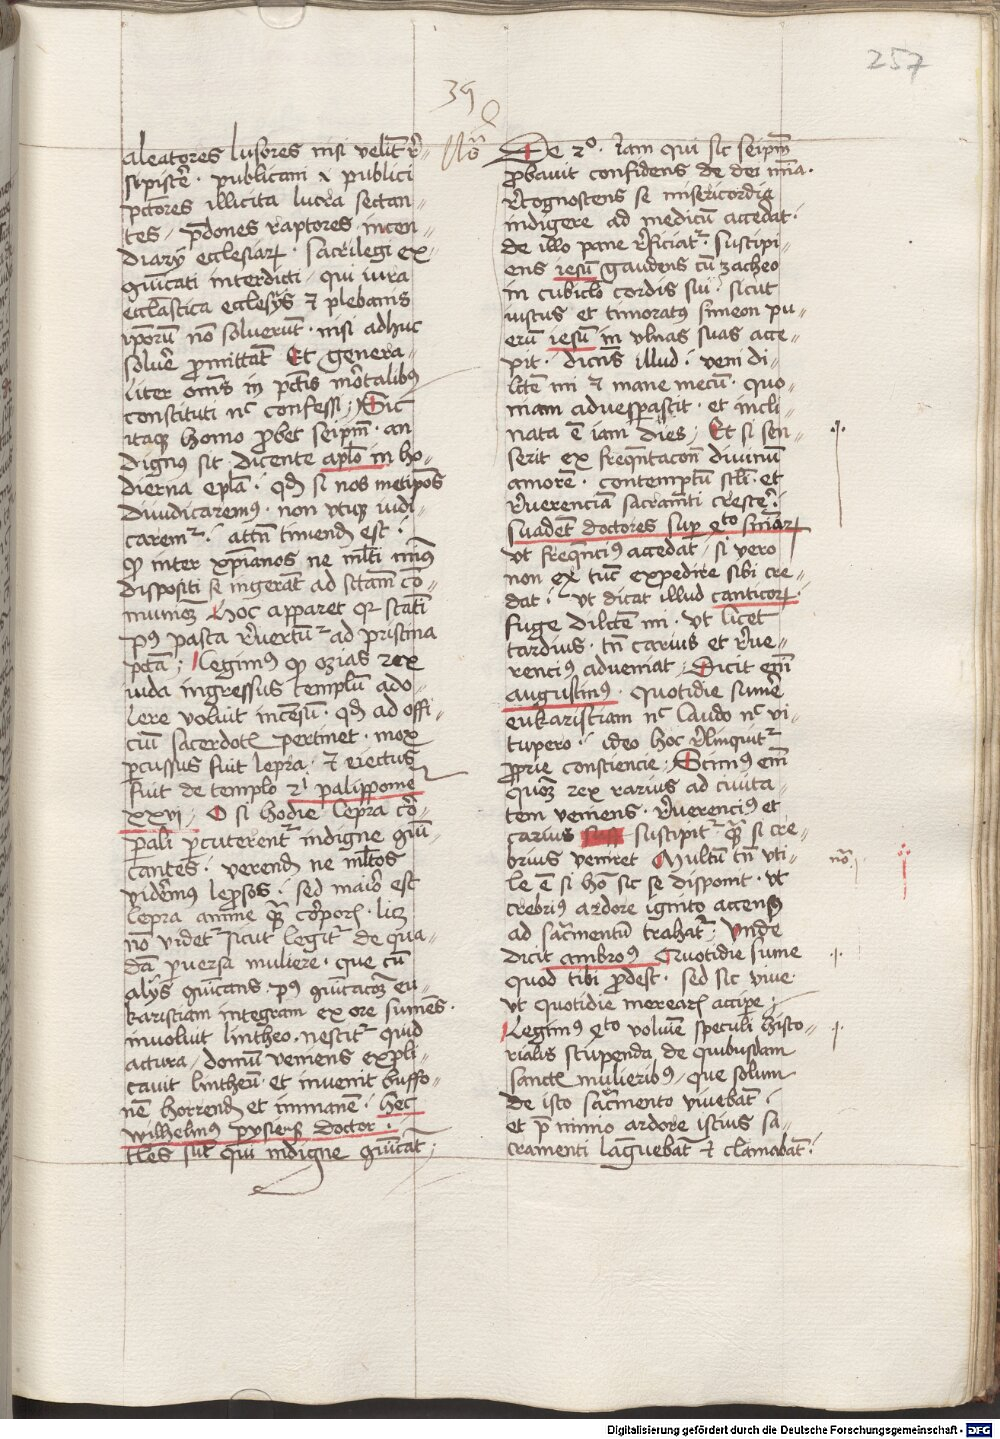 257
39
aleatores lusores nisi velīt rͤ-
sipiscͤe · publicani ⁊ publici
pctͦores illicita lucra sectan-
tes / pͤdones raptores · incen-
diarij ecclesiarꝝ · sacrilegi ex-
coῑcati interdicti · qui iura
ecclāstica ecclesijs et plebanis
ipōrum nō soluerūt · nisi adhuc
soluē promittāt Et genera-
liter om̄s in pctīs mōrtalibꝰ
constituti nō confessi / Sic
itaqꝫ homo probet seipm̄ · an
dignꝰ sit · dicente aplō in ho-
dierna epl̄a · qd̄ si nos metipōs
diiudicaremꝰ · non vtiqꝫ iudi-
caremur · attn̄ timend̄ est ·
qꝫ inter xp̄ianos ne ml̄ti minꝰ
dispositi se ingerāt ad sctām cō-
munioꝫ Hoc apparet qr statī
pꝰ pasca rͤuertūtur ad pristina
pctā ; Legimꝰ qꝫ ozias rex
iuda ingressus templū ado-
lere voluit incēsū · qd̄ ad offi-
ciū sacerdotꝭ pertinet · mox
ꝑcussus fuit lepra · et eiectus
fuit de templo 2ͥ palippome
xxvi · O si hodie lepra cōr-
ꝑali ꝑcuterent͛ indigne coῑ-
cantes · verend̄ ne ml̄tos
viderēmꝰ leprosos · sed maior̄ est
lepra anime qͣꝫ corporꝭ · licꝫ
nō videt͛ sicut legit͛ de qua-
dā ꝑuersa muliere · que cū
alijs coῑcans pꝰ coῑcacōꝫ eu-
karistiam integram ex ore sumēs ·
inuoluit lintheo · nescit͛ quid
actura / domū veniens expli-
cauit lintheū · et inuenit buffo-
nē horrend̄ et immanē · hec
wilhelmꝰ pysienꝭ doctor ·
tl̄es sūt qui indigne coῑcāt ;
Nōͣ
De 2º · Iam qui sic seipm̄
probauit confidens de dei mīa ·
rͤcognoscens se misericordie
indigere ad medicū accedat ·
de illo pane rͤficiatur · suscipi-
ens iesū gaudens cū zacheo
in cubiclo cordis sui · sicut
iustus et timoratꝰ simeon pu-
erū iesū in vlnas suas acce-
pit · dicens illud · veni di-
lcte mi et mane mecū · quo-
niam aduesperascit · et incli-
nata ē iam dies ; Et si sen-
serit ex freqn̄tacōn̄ diuinum
amorē · contemptū sctī · et
rͤuerenciā sacramēti crescere ·
suadēt doctores suꝑ qͦto sniārꝝ
vt freqn̄ciꝰ accedat / si vero
non ex tūc expedire sibi cre-
dat · vt dicat illud canticorꝝ ·
fuge dilcte mi · vt licet
tardius · tn̄ carius et rͤue-
renciꝰ adueniat ; Dicit em̄
augustinꝰ · quotidie sumē
eukaristiam nᶜ laudo nᶜ vi-
tupero · ideo hoc rͤlinquit͛
proprie consciencie ; Scimꝰ em̄
quoꝫ rex rarius ad ciuita-
tem veniens · rͤuerenciꝰ et
carius susc suscipit͛ qͣꝫ si cre-
brius veniret Multū tn̄ vti-
le ē si hō sic se disponit · vt
crebriꝰ ardore ignito accensꝰ
ad sac̄mentū trahat͛ ; Vnde
dicit ambroꝰ Quotidie sume
quod tibi prodest · sed sic viue
vt quotidie merearꝭ accipe ;
Legimꝰ qͦto volumē speculi histo-
rialis stupenda de quibusdam
sanctꝭ mulieribꝰ / que solum
de isto sacͣmento viuebāt ·
et pͤ nimio ardore istius sa-
cramenti lāguebāt et clamabāt ·
nōͣ
Digitalisierung gefördert durch die Deutsche Forschungsgemeinschaft - DFG